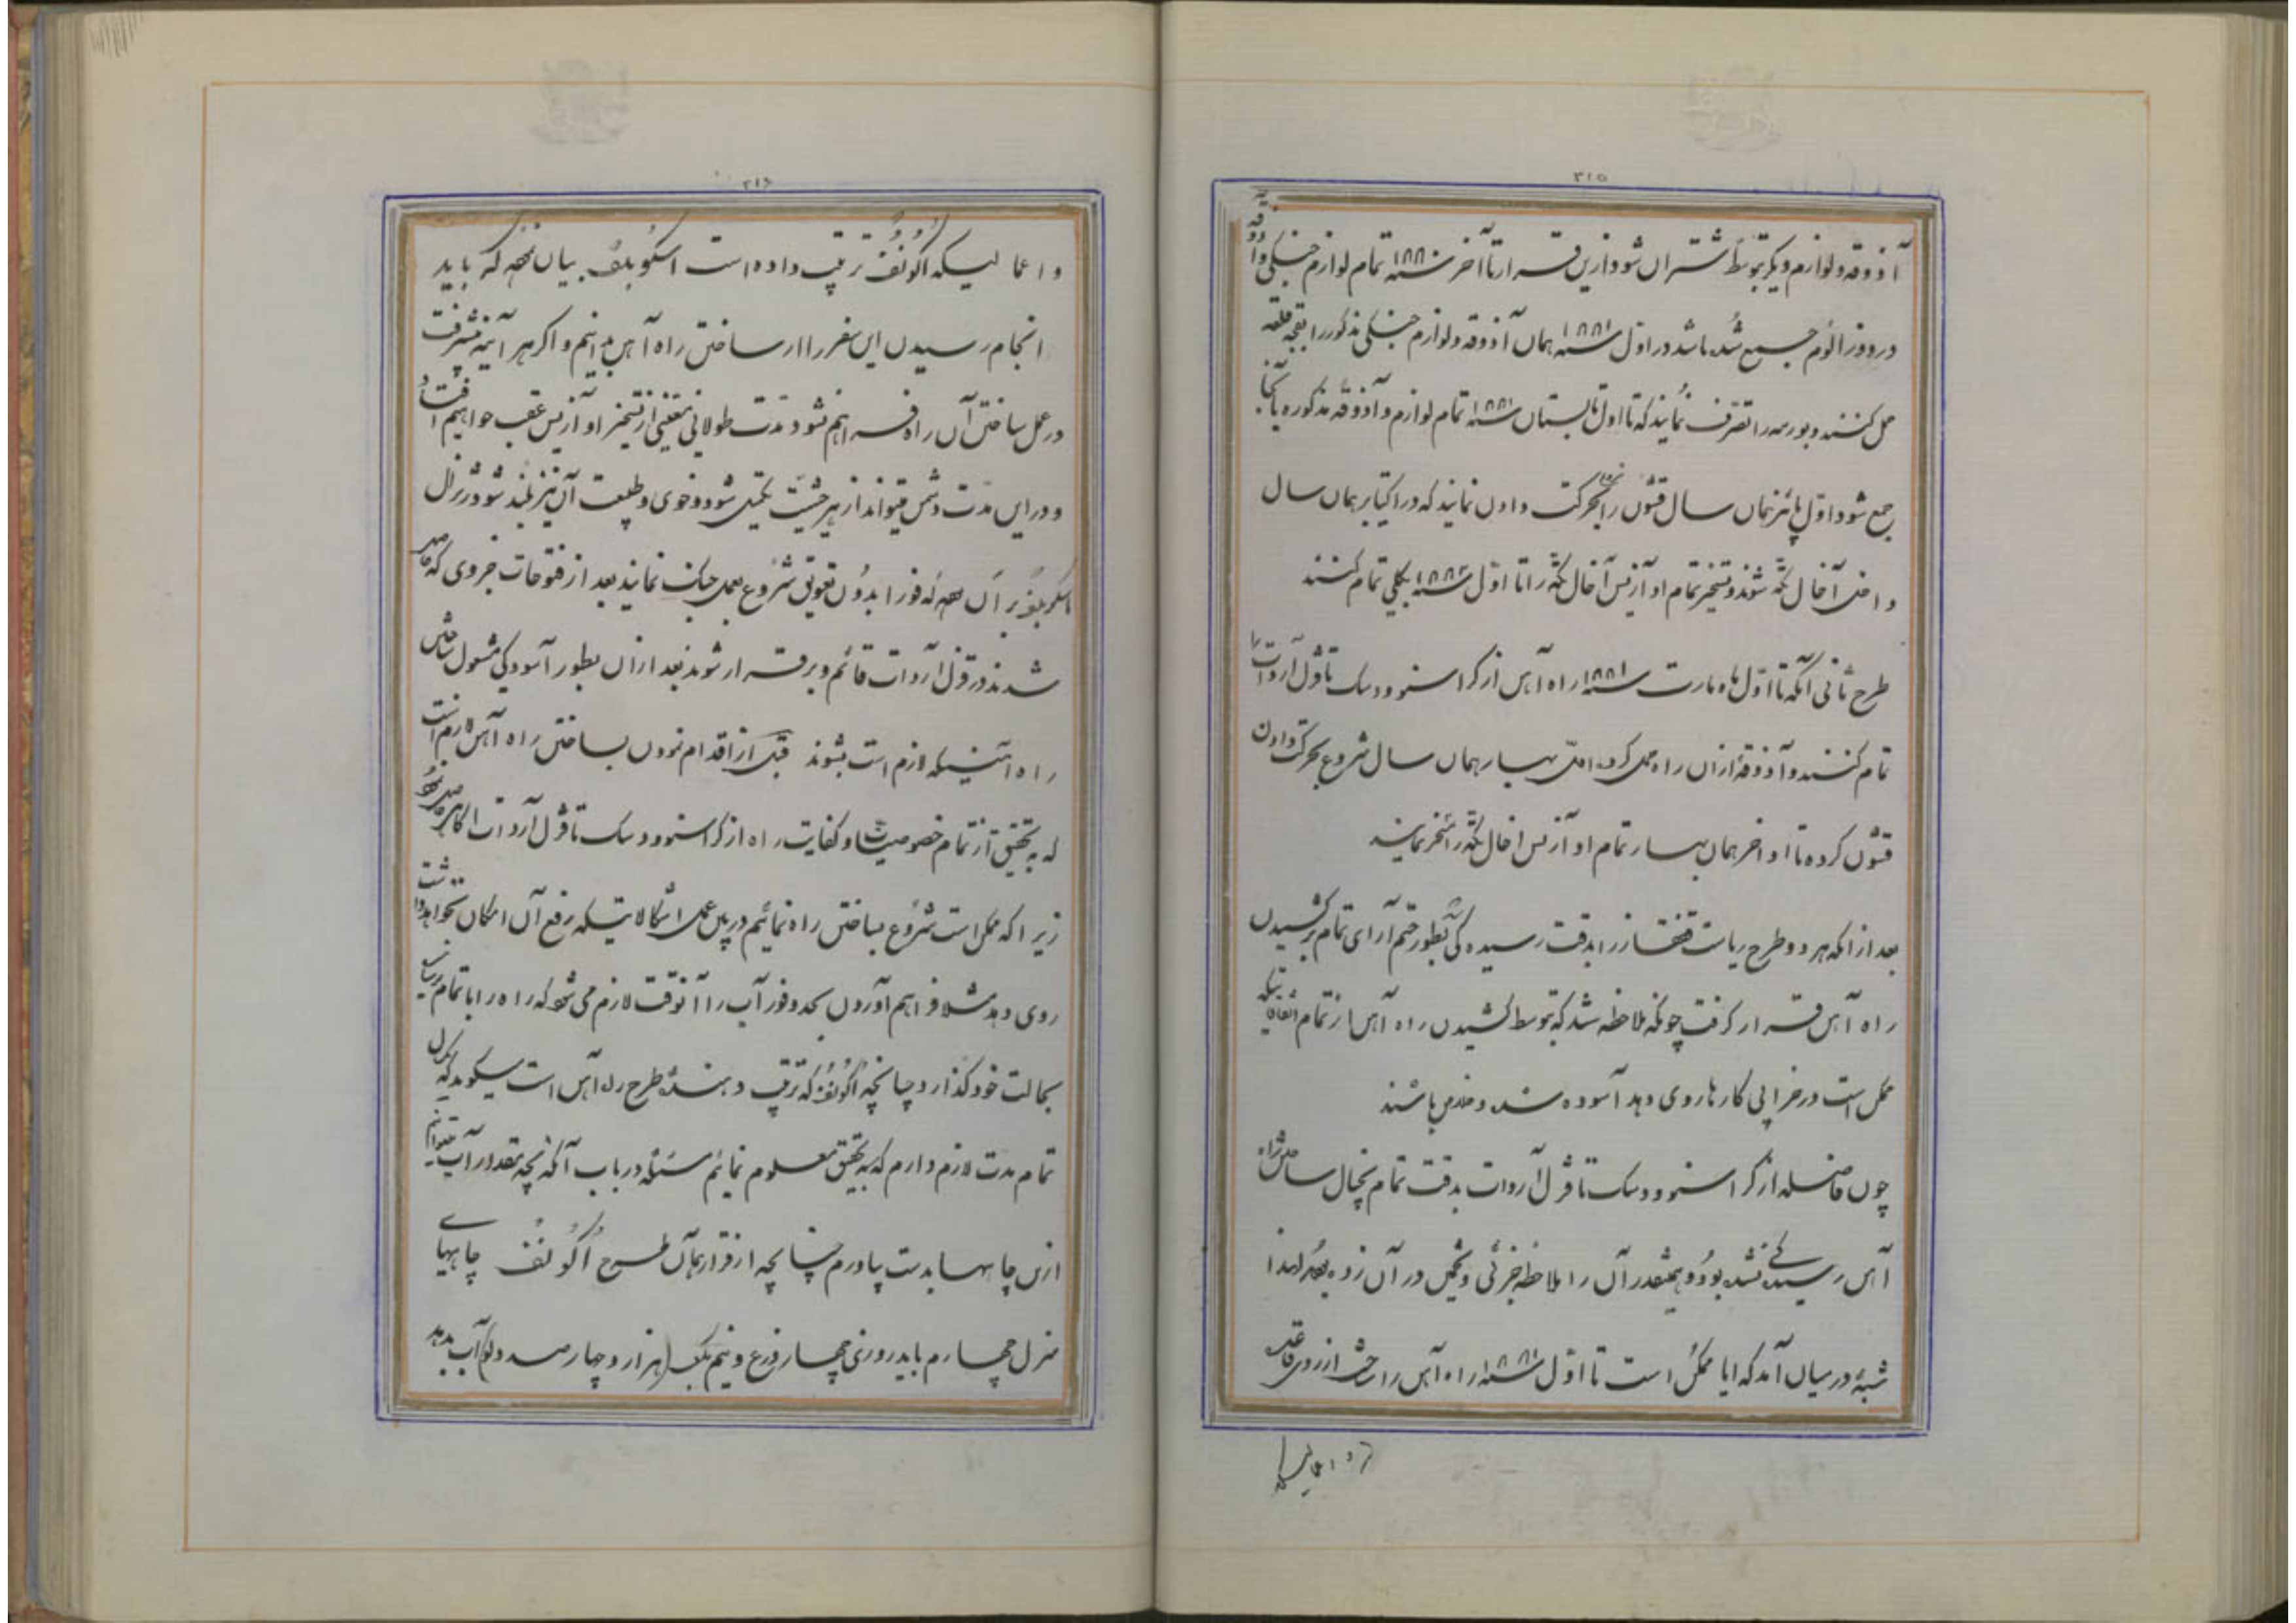 ٣١٥
آذوقه ولوازم دیگر بتوسط شتران شود ازین قرار تا آخر سنه ١٨٨٠ تمام لوازم جنگی و آذوقه
در دوز الوم جمع شده باشد در اول سنه ١٨٨١ همان آذوقه ولوازم جنگی مذکور را بقلعه
حمل کنند و بورمه را تصرف نمایند که تا اول تابستان سنه ١٨٨١ تمام لوازم و آذوقه مذکوره بآنجا
جمع شود اول پائیز همان سال قشون را بحرکت دادن نمایند که در اکتابر همان سال
داخل آخال تکه شوند و تسخیر تمام اوآزیس آخال تکه را تا اول سنه ١٨٨٢ بکلی تمام کنند
طرح ثانی آنکه تا اول ماه مارت سنه ١٨٨١ راه آهن از کراسنوودسک تا قزل آروات را
تمام کنند و آذوقه از آن راه حمل کرده اول بهار همان سال شروع بحرکت دادن
قشون کرده تا اواخر همان بهار تمام اوآزیس اخال تکه را مسخر نمایند
بعد از آنکه هر دو طرح ریاست قفقاز را بدقت رسیدگی بطور ختم آرای تمام بر کشیدن
راه آهن قرار گرفت چونکه ملاحظه شد که بتوسط کشیدن راه آهن از تمام اتفاقاتیکه
ممکن است در خرابی کارها روی دهد آسوده شده و خلاص باشند
چون فاصله از کراسنوودسک تا قزل آروات بدقت تمام بخیال ساختن راه
آهن رسیدگی نشده بود و همینقدر آن را ملاحظه جزئی و تخمین در آن زده بود لهذا
شبهٔ در میان آمد که ایا ممکن است تا اول سنه ١٨٨١ راه آهن را ساخت از روی قاعده
٣١٦
و اعمالیکه اکونف ترتیب داده است اسکوبلف بیان نمود که باید
انجام رسیدن این سفر را از ساختن راه آهن بدانیم و اگر هر آینه پیشرفت
در عمل ساختن آن راه فراهم نشود مدت طولانی یقینی از تسخیر اوآزیس عقب خواهیم افتاد
و در این مدت دشمن میتواند از هر حیثیت تکمیل شود و خوی و طبیعت آن نیز بلند شود ژنرال
اسکوبلف بر آن بود که فوراً بدون تعویق شروع بعمل جنگ نمایند بعد از فتوحات جزوی که حاضر
شدند در قزل آروات قائم و برقرار شوند بعد از آن بطور آسودگی مشغول ساختن
راه آهنیکه لازم است بشوند قبل از اقدام نمودن بساختن راه آهن لازم است
که به تحقیق از تمام خصوصیت و کفایت راه از کراسنوودسک تا قزل آروات آگاهی حاصل نمود
زیرا که ممکن است شروع بساختن راه نمائیم در بین عمل اشکالاتیکه رفع آن امکان نخواهد داشت
روی دهد مثلا فراهم آوردن بحد وفور آب را آنوقت لازم می شود که راه را با تمام
بحالت خود گذارد چنانچه اکونف که ترتیب دهنده طرح راه آهن است میگوید که
تمام مدت لازم دارم که به تحقیق معلوم نمایم مسئله در باب آنکه بچه مقدور آب میتوانیم
ازین چاهها بدست بیاورم چنانچه از قرار همان طرح اکونف چاههای
منزل چهارم باید روزی چهار ذرع و نیم مکعب (هزار و چهارصد دلو) آب بدهد